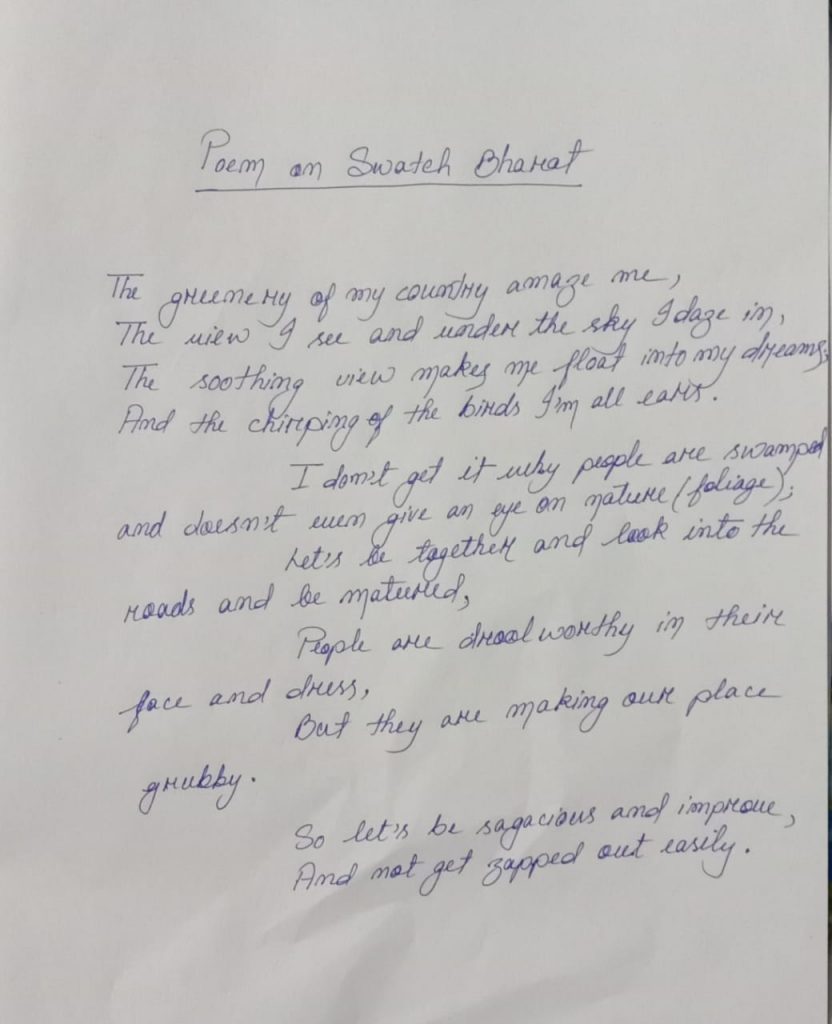 Poem on Swatch Bharat
The greenery of my country amaze me,
The view I see and under the sky I daze in,
The soothing view makes me float into my dreams,
And the chirping of the birds I'm all ears.
I don't get it why people are swamped
and doesn't even give an eye on nature (foliage);
Let's be together and look into the
roads and be matured,
People are drool worthy in their
face and dress,
But they are making our place
grubby.
So let's be sagacious and improve,
And not get zapped out easily.